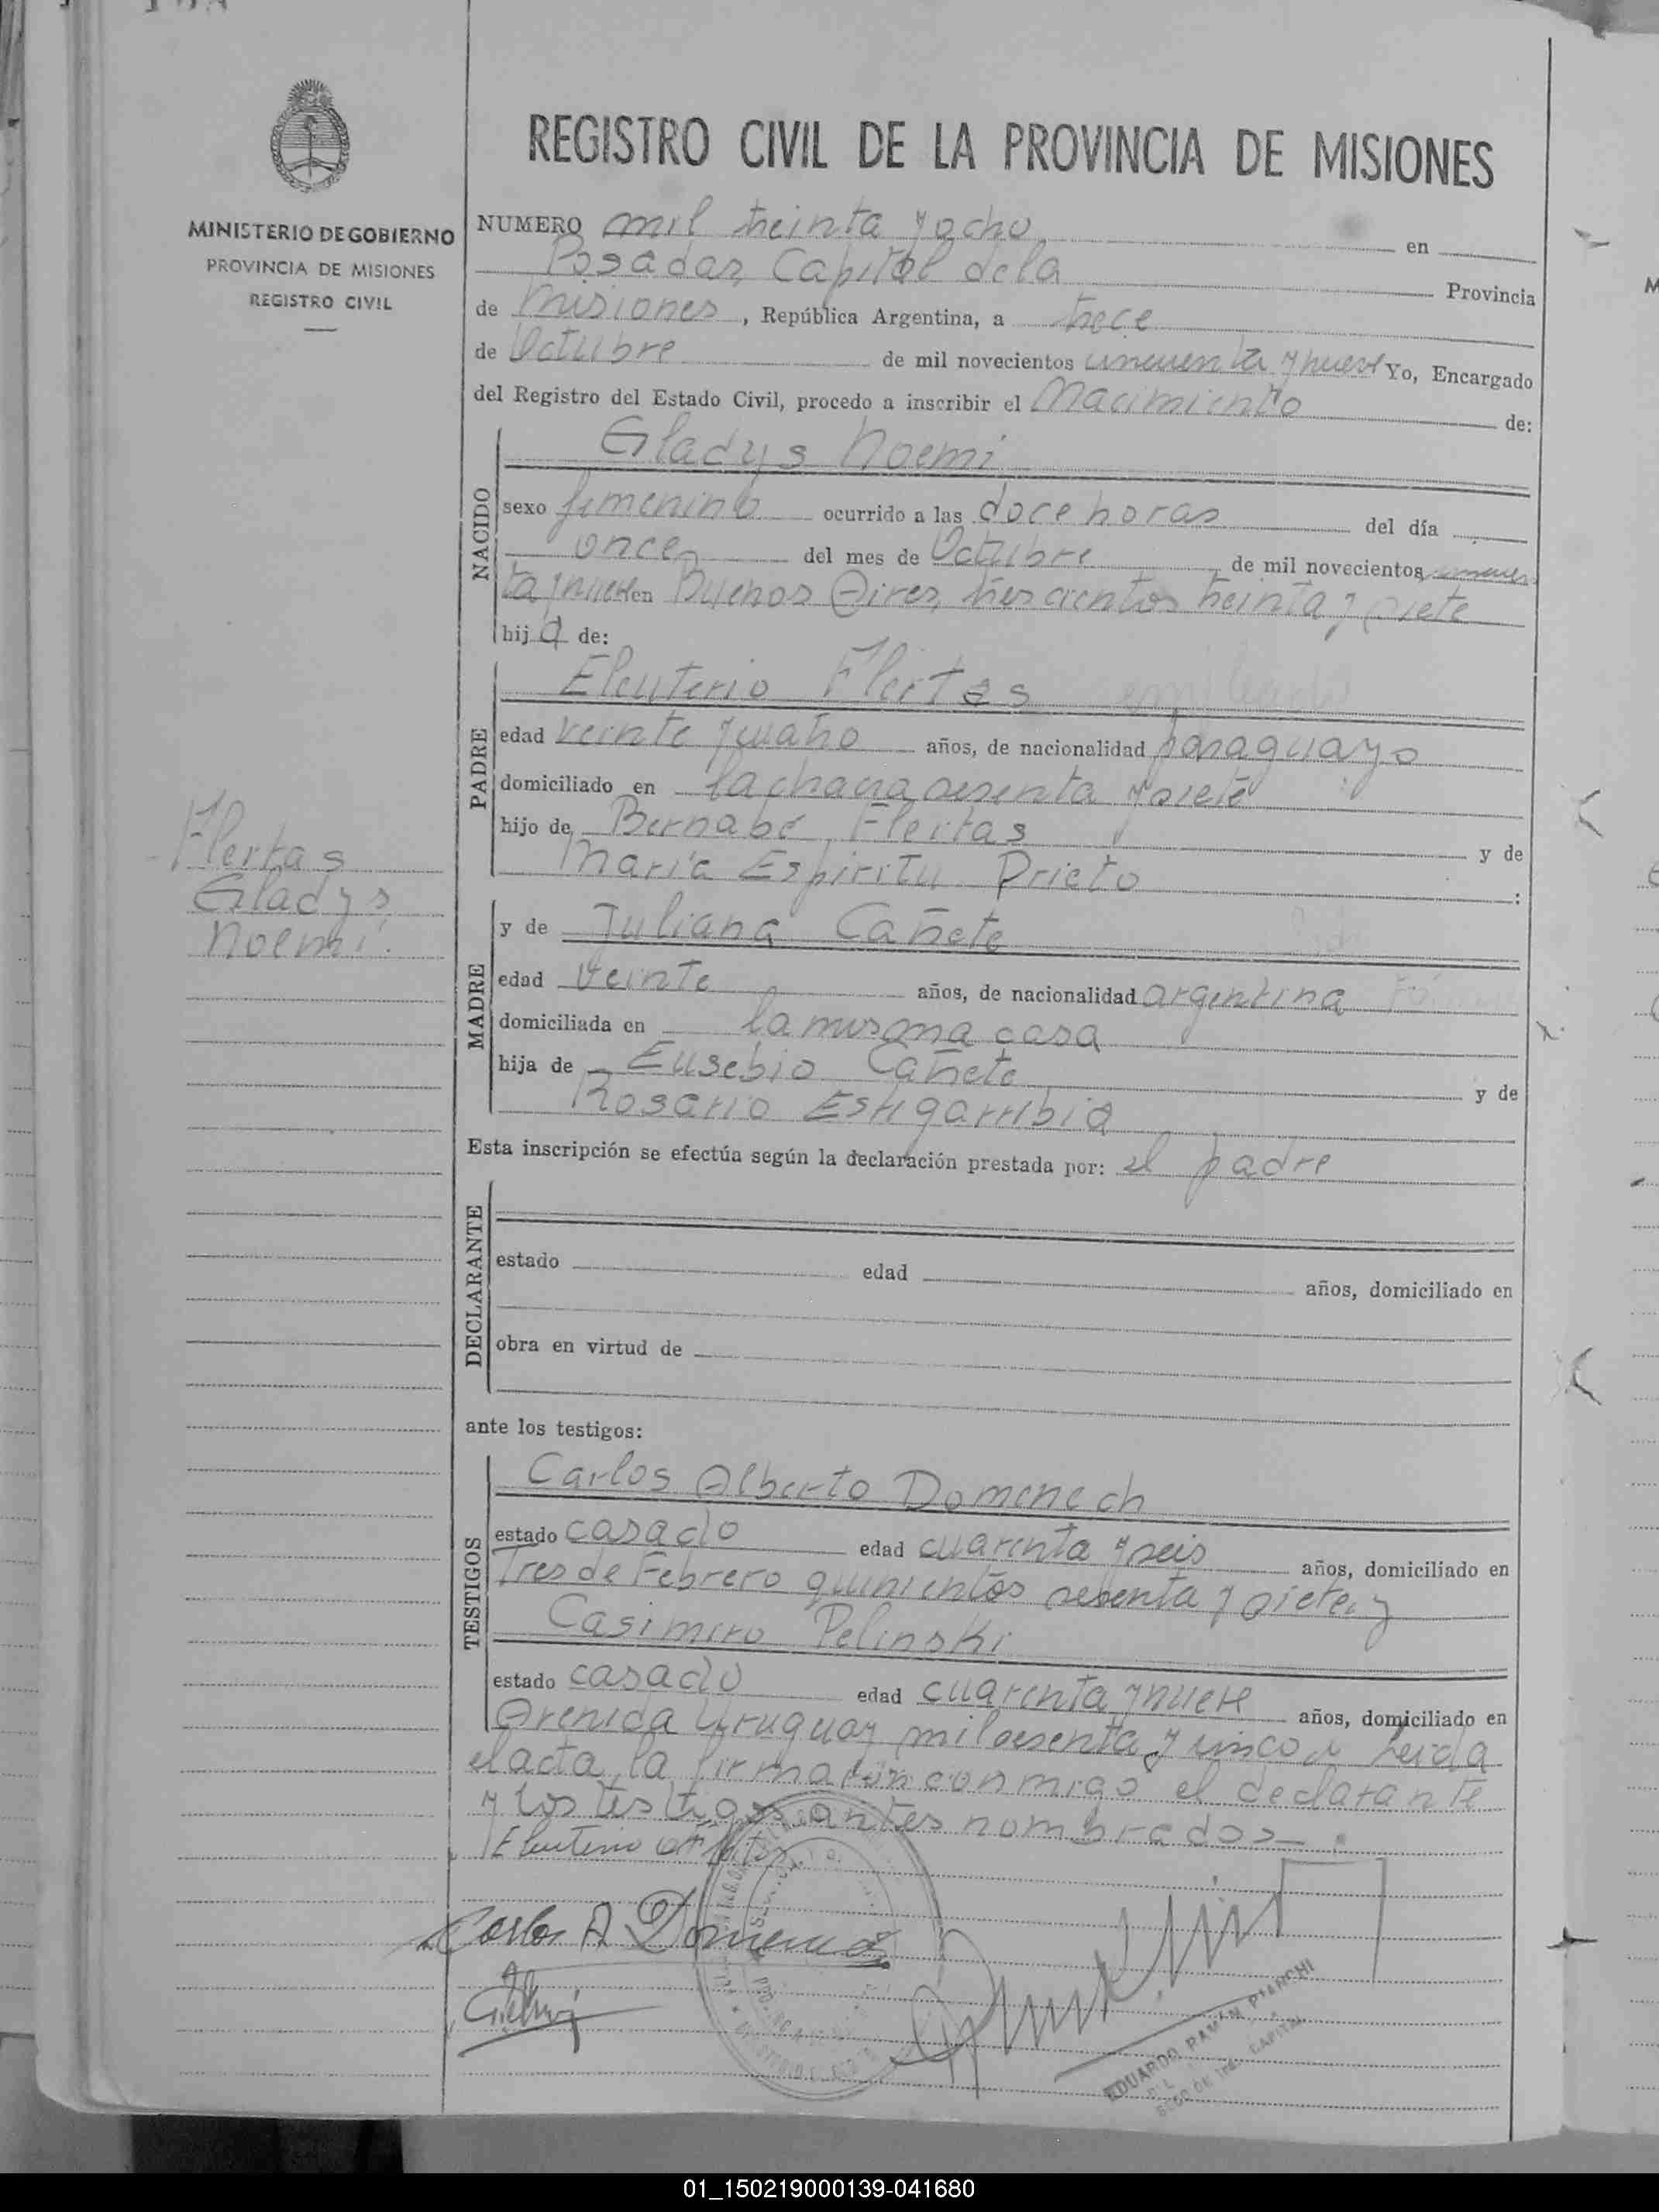 REGISTRO CIVIL DE LA PROVINCIA DE MISIONES
MINISTERIO DE GOBIERNO
PROVINCIA DE MISIONES
REGISTRO CIVIL
NUMERO mil treinta y ocho en
Posadas, Capital de la Provincia
de Misiones, República Argentina, a trece
de Octubre de mil novecientos cincuenta y nueve Yo, Encargado
del Registro del Estado Civil, procedo a inscribir el Nacimiento de:
NACIDO
Gladys Noemi
sexo femenino ocurrido a las doce horas del día
once del mes de Octubre de mil novecientos cincuen
ta y nueve en Buenos Aires, trescientos treinta y siete
hija de:
PADRE
Eleuterio Fleitas
edad veinte y cuatro años, de nacionalidad paraguayo
domiciliado en la chacra sesenta y siete
hijo de Bernabé Fleitas y de
María Espiritu Prieto :
Fleitas
Gladys
Noemí.
MADRE
y de Juliana Cañete
edad veinte años, de nacionalidad argentina
domiciliada en la misma casa
hija de Eusebio Cañete y de
Rosario Estigarribia
Esta inscripción se efectúa según la declaración prestada por: el padre
DECLARANTE
estado edad años, domiciliado en
obra en virtud de
ante los testigos:
TESTIGOS
Carlos Alberto Domenech
estado casado edad cuarenta y seis años, domiciliado en
Tres de Febrero quinientos setenta y siete, y
Casimiro Pelinski
estado casado edad cuarenta y nueve años, domiciliado en
Avenida Uruguay mil sesenta y cinco. Leida
el acta, la firmaron conmigo el declarante
y los testigos antes nombrados.
Eleuterio Fleitas
Carlos A. Domenech
EDUARDO RAMÓN PIARCHI
CAPITAL
01_150219000139-041680